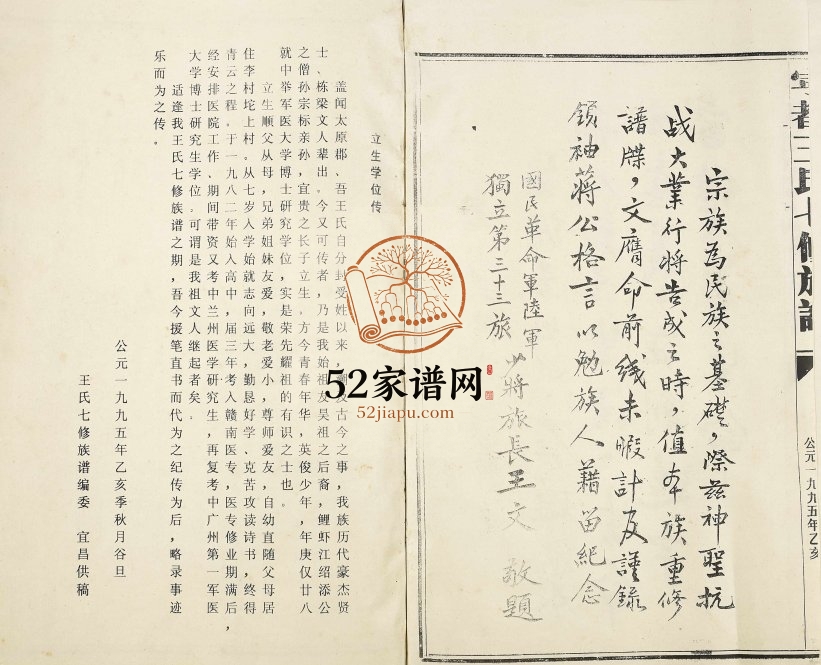 王氏七修族譜
公元一九九五年乙亥
宗族為民族之基礎，際茲神聖抗
战大業行將告成之時，值本族重修
譜牒，文膺命前线未暇計及謹錄
領袖蔣公格言以勉族人藉留紀念
國民革命軍陸軍
獨立第三十三旅 少將旅長王文 敬題
立生学位传
盖闻太原郡、吾王氏自分封受姓以来，及古今之事，我族历代豪杰贤
士、栋梁文人辈出。今又可传者，乃是我始祖友吴祖之后裔，鲤虾江绍添公
之僧孙宗标亲孙，宜贵之长子立生。方今青春年华，英俊少年，年庚仅廿八
就中举军医大学博士研究学位，实是荣先耀祖的有识之士也。
立生顺父从母，兄弟姐妹友爱，敬老爱小，尊师爱友，自幼直随父母居
住李村坨上村。从七岁入学始就志向远大，勤恳好学、克苦攻读诗书，终得
青云之程。于一九八二年始入高中，届三年考入赣南医专，医专修业期满后，
经安排医院工作、期间带资又考中兰州医学研究生，再复考中广州第一军医
大学博士研究生学位。可谓是我祖文人继起者矣。
适逢我王氏七修族谱之期，吾今援笔直书而代为之纪传为后，略录事迹
乐而为之传。
公元一九九五年乙亥季秋月谷旦
王氏七修族谱编委 宜昌供稿
52家谱网
52jiapu.com